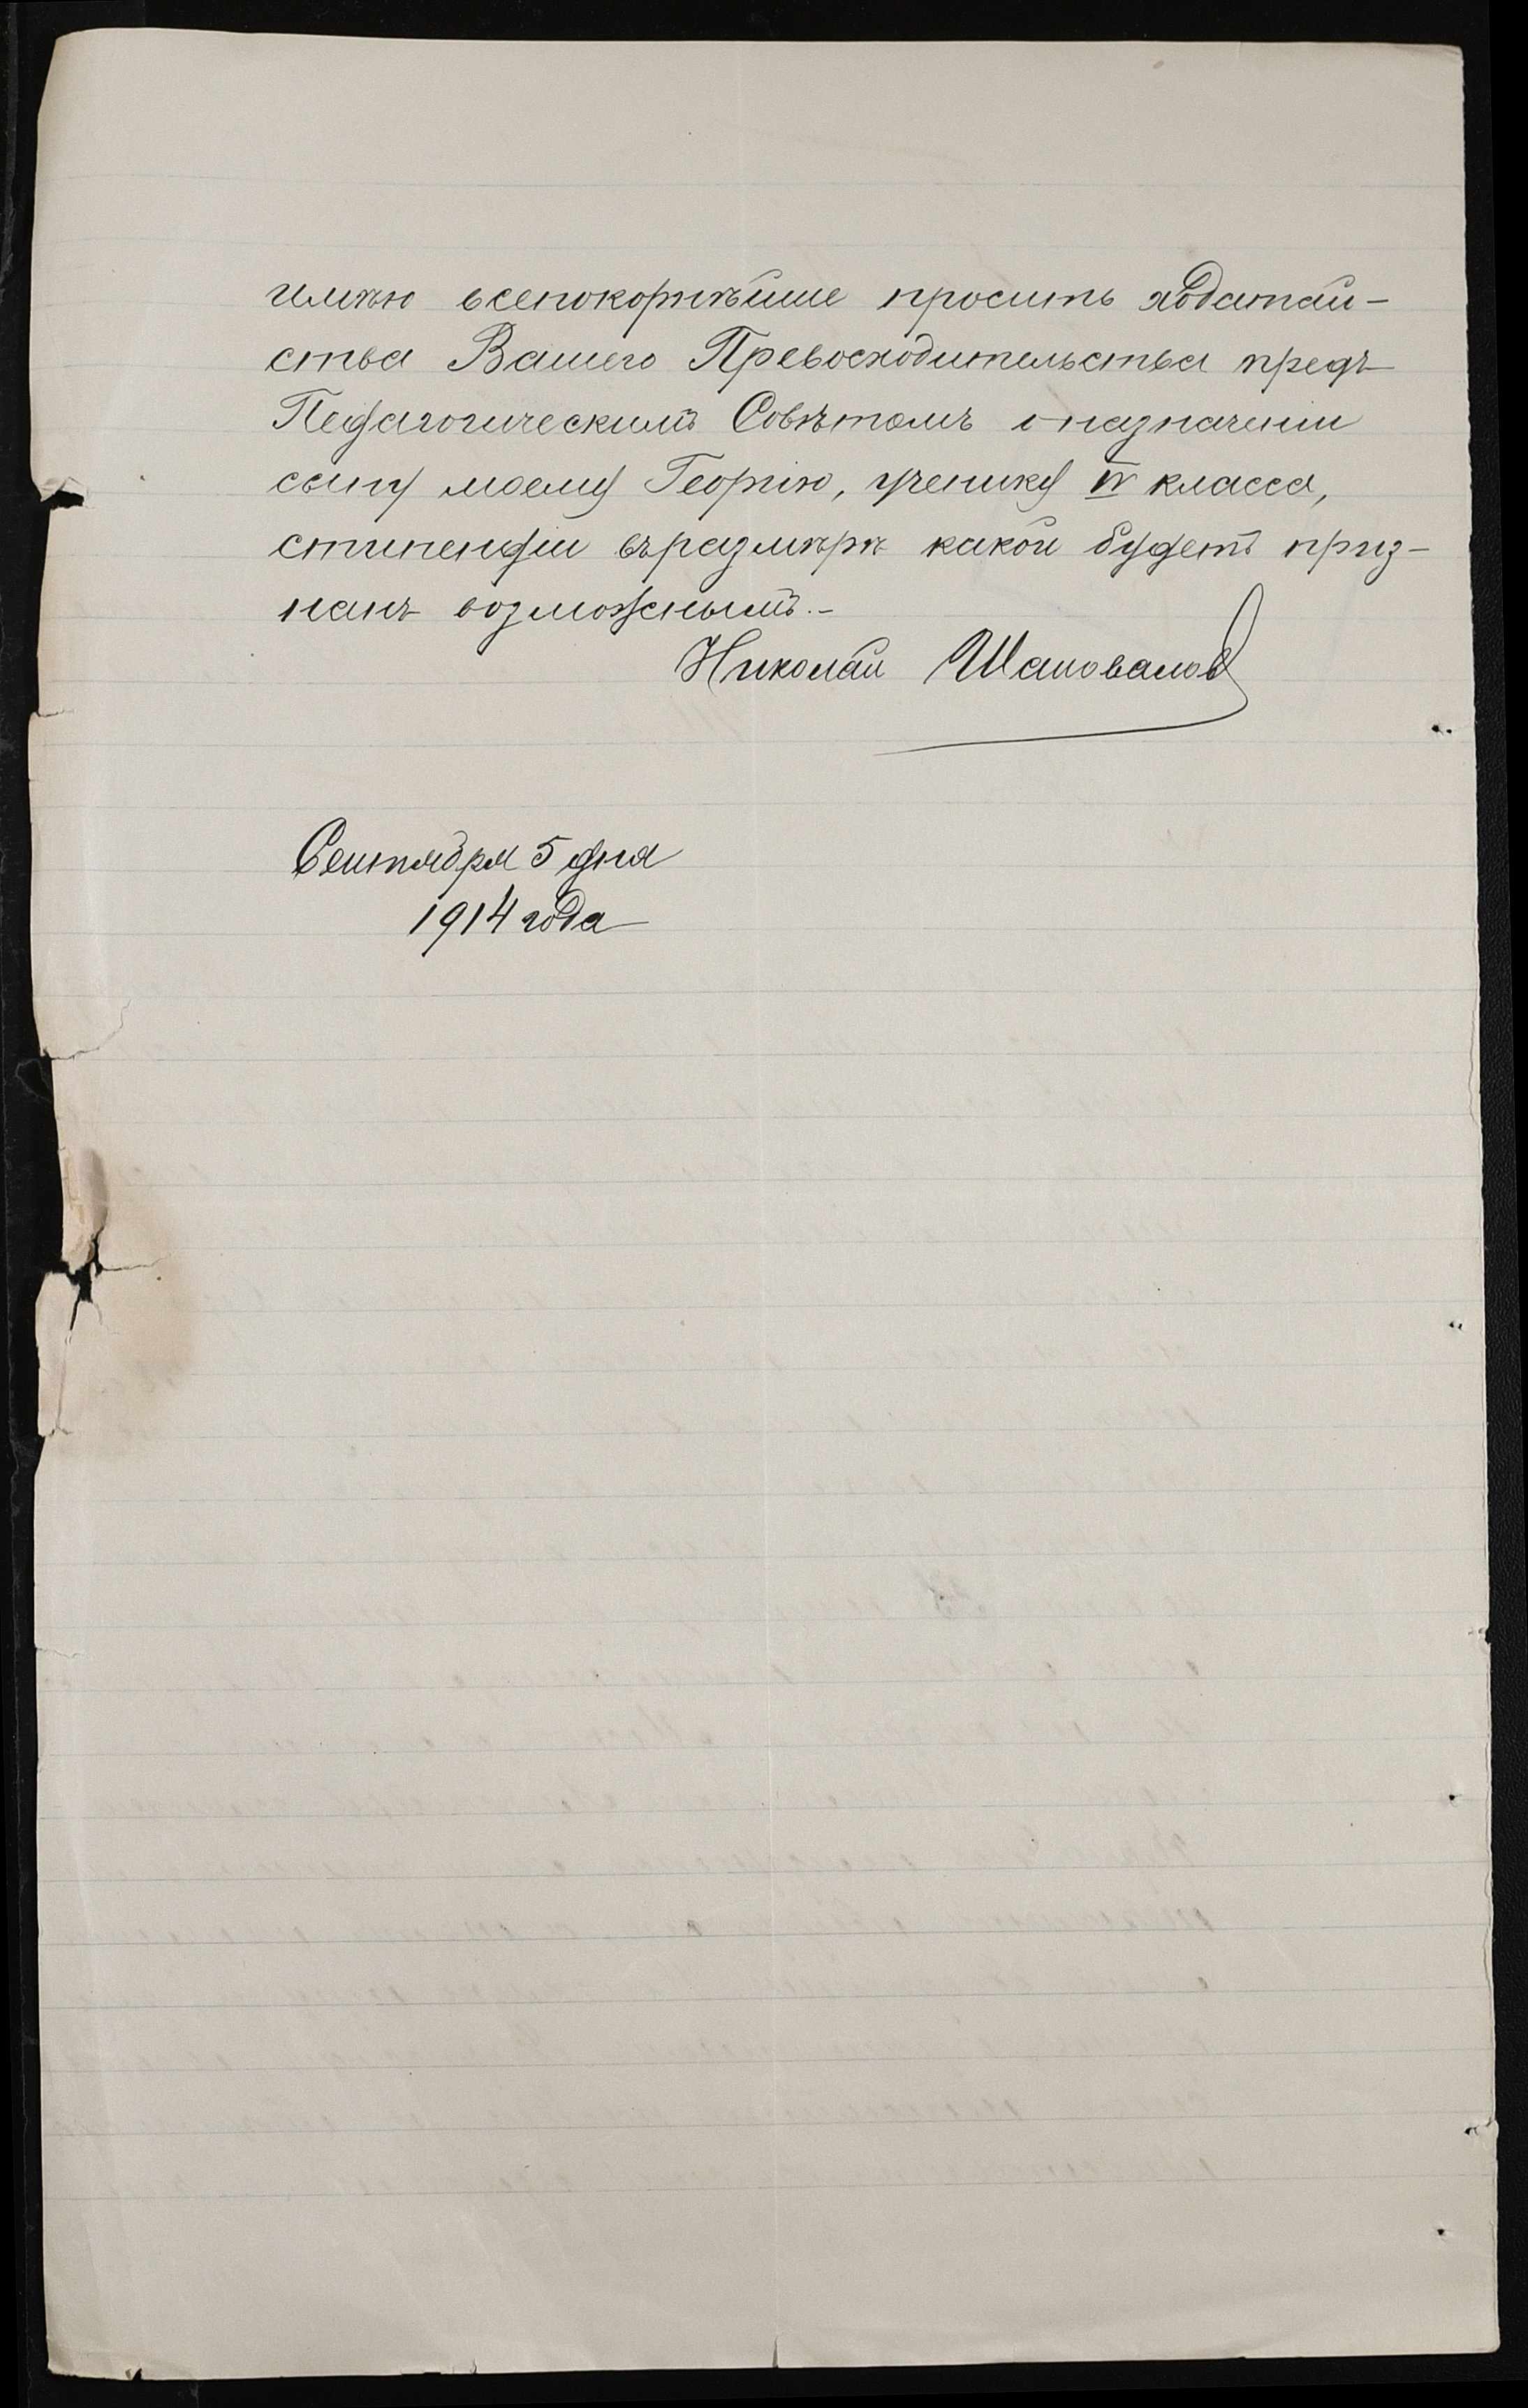 имѣю всепокорнѣйше просить ходатай-
ства Вашего Превосходительства предъ
Педагогическимъ Совѣтомъ о назначеніи
сыну моему Георгію, ученику IV класса,
стипендіи въ размѣрѣ какой будетъ приз-
нанъ возможнымъ.-
Николай Шаповалов
Сентября 5 дня
1914 года